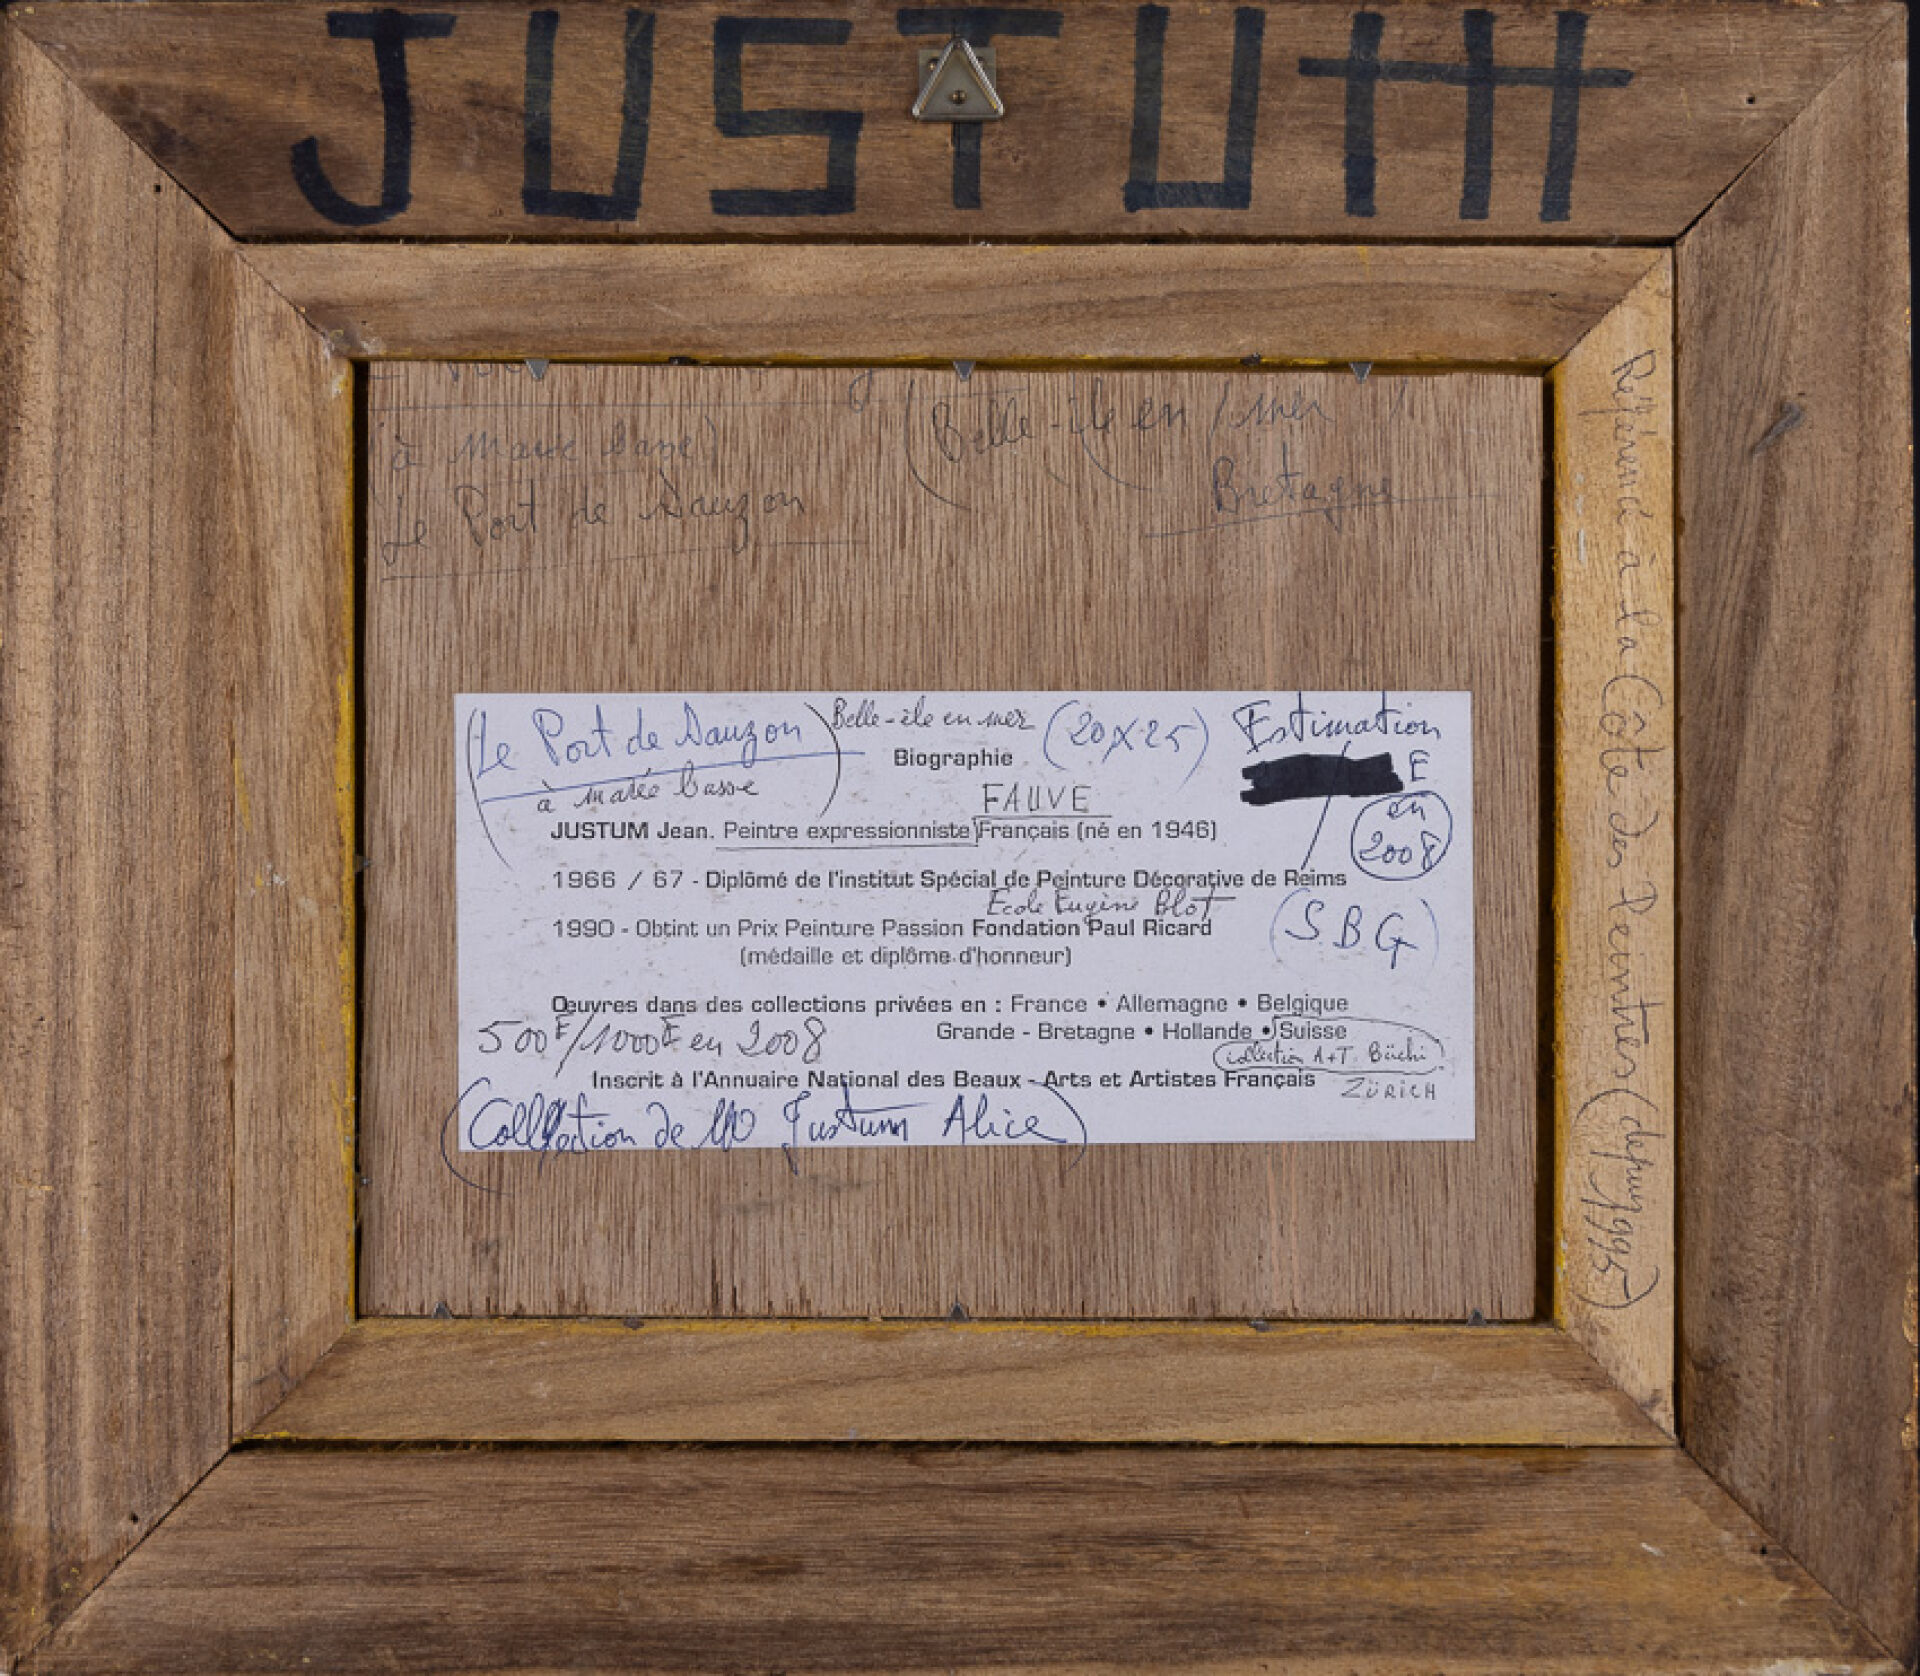 JUSTUM
à marée basse)
(Belle-île en mer)
Le Port de Sauzon
Bretagne
Référencé à la Côte des Peintres (depuis 1995)
(Le Port de Sauzon) Belle-île en mer (20x25) Estimation
Biographie
E
à marée basse
FAUVE
en
2008
JUSTUM Jean. Peintre expressionniste Français (né en 1946)
1966 / 67 - Diplômé de l'institut Spécial de Peinture Décorative de Reims
Ecole Eugène Blot
(S.B.G)
1990 - Obtint un Prix Peinture Passion Fondation Paul Ricard
(médaille et diplôme d'honneur)
Œuvres dans des collections privées en : France • Allemagne • Belgique
500E/1000E en 2008
Grande - Bretagne • Hollande • Suisse
Collection A+T. Büchi
Inscrit à l'Annuaire National des Beaux - Arts et Artistes Français
ZÜRICH
(Collection de Justum Alice)